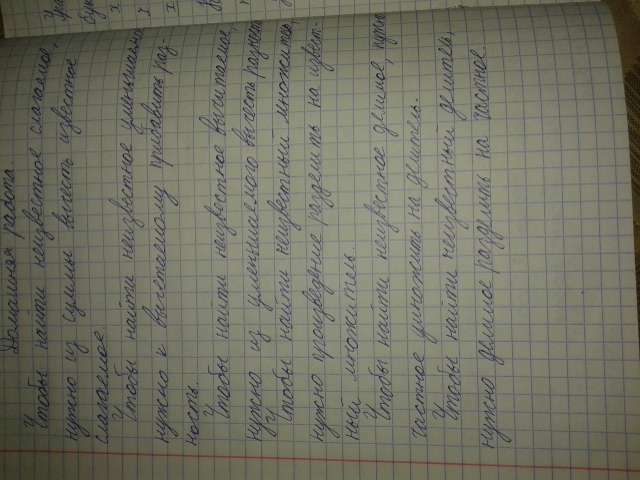 Домашняя работа.
Чтобы найти неизвестное слагаемое,
нужно из суммы вычесть известное
слагаемое.
Чтобы найти неизвестное уменьшаемое
нужно к вычетаемому прибавить раз-
ность.
Чтобы найти неизвестное вычитаемое,
нужно из уменьшаемого вычесть разность
Чтобы найти неизвестный множитель,
нужно произведение разделить на извест-
ный множитель.
Чтобы найти неизвестное делимое, нужно
частное умножить на делитель.
Чтобы найти неизвестный делитель,
нужно делимое разделить на частное.
Ура
бук
x
x
x